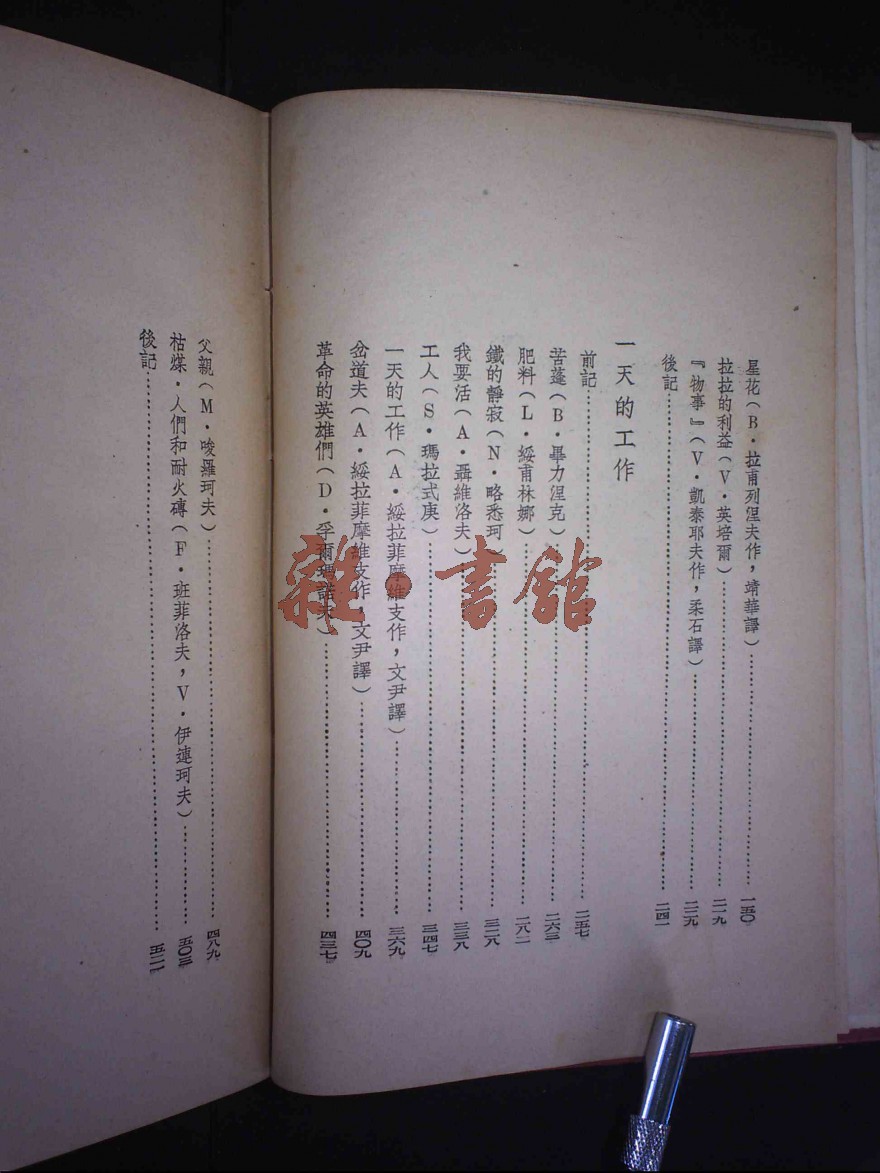 星花（B・拉甫列涅夫作，靖華譯）……一五〇
拉拉的利益（V・英培爾）……二一九
『物事』（V・凱泰耶夫作，柔石譯）……二二九
後記……二四一
一天的工作
前記……二五七
苦蓬（B・畢力涅克）……二六三
肥料（L・綏甫林娜）……二八二
鐵的靜寂（N・略悉珂）……三二八
我要活（A・聶維洛夫）……三三八
工人（S・瑪拉式庚）……三四七
一天的工作（A・綏拉菲摩維支作，文尹譯）……三六九
岔道夫（A・綏拉菲摩維支作，文尹譯）……四〇九
革命的英雄們（D・孚爾瑪諾夫）……四三七
父親（M・唆羅珂夫）……四八九
枯煤・人們和耐火磚（F・班菲洛夫，V・伊連珂夫）……五〇三
後記……五二一
雜・書館